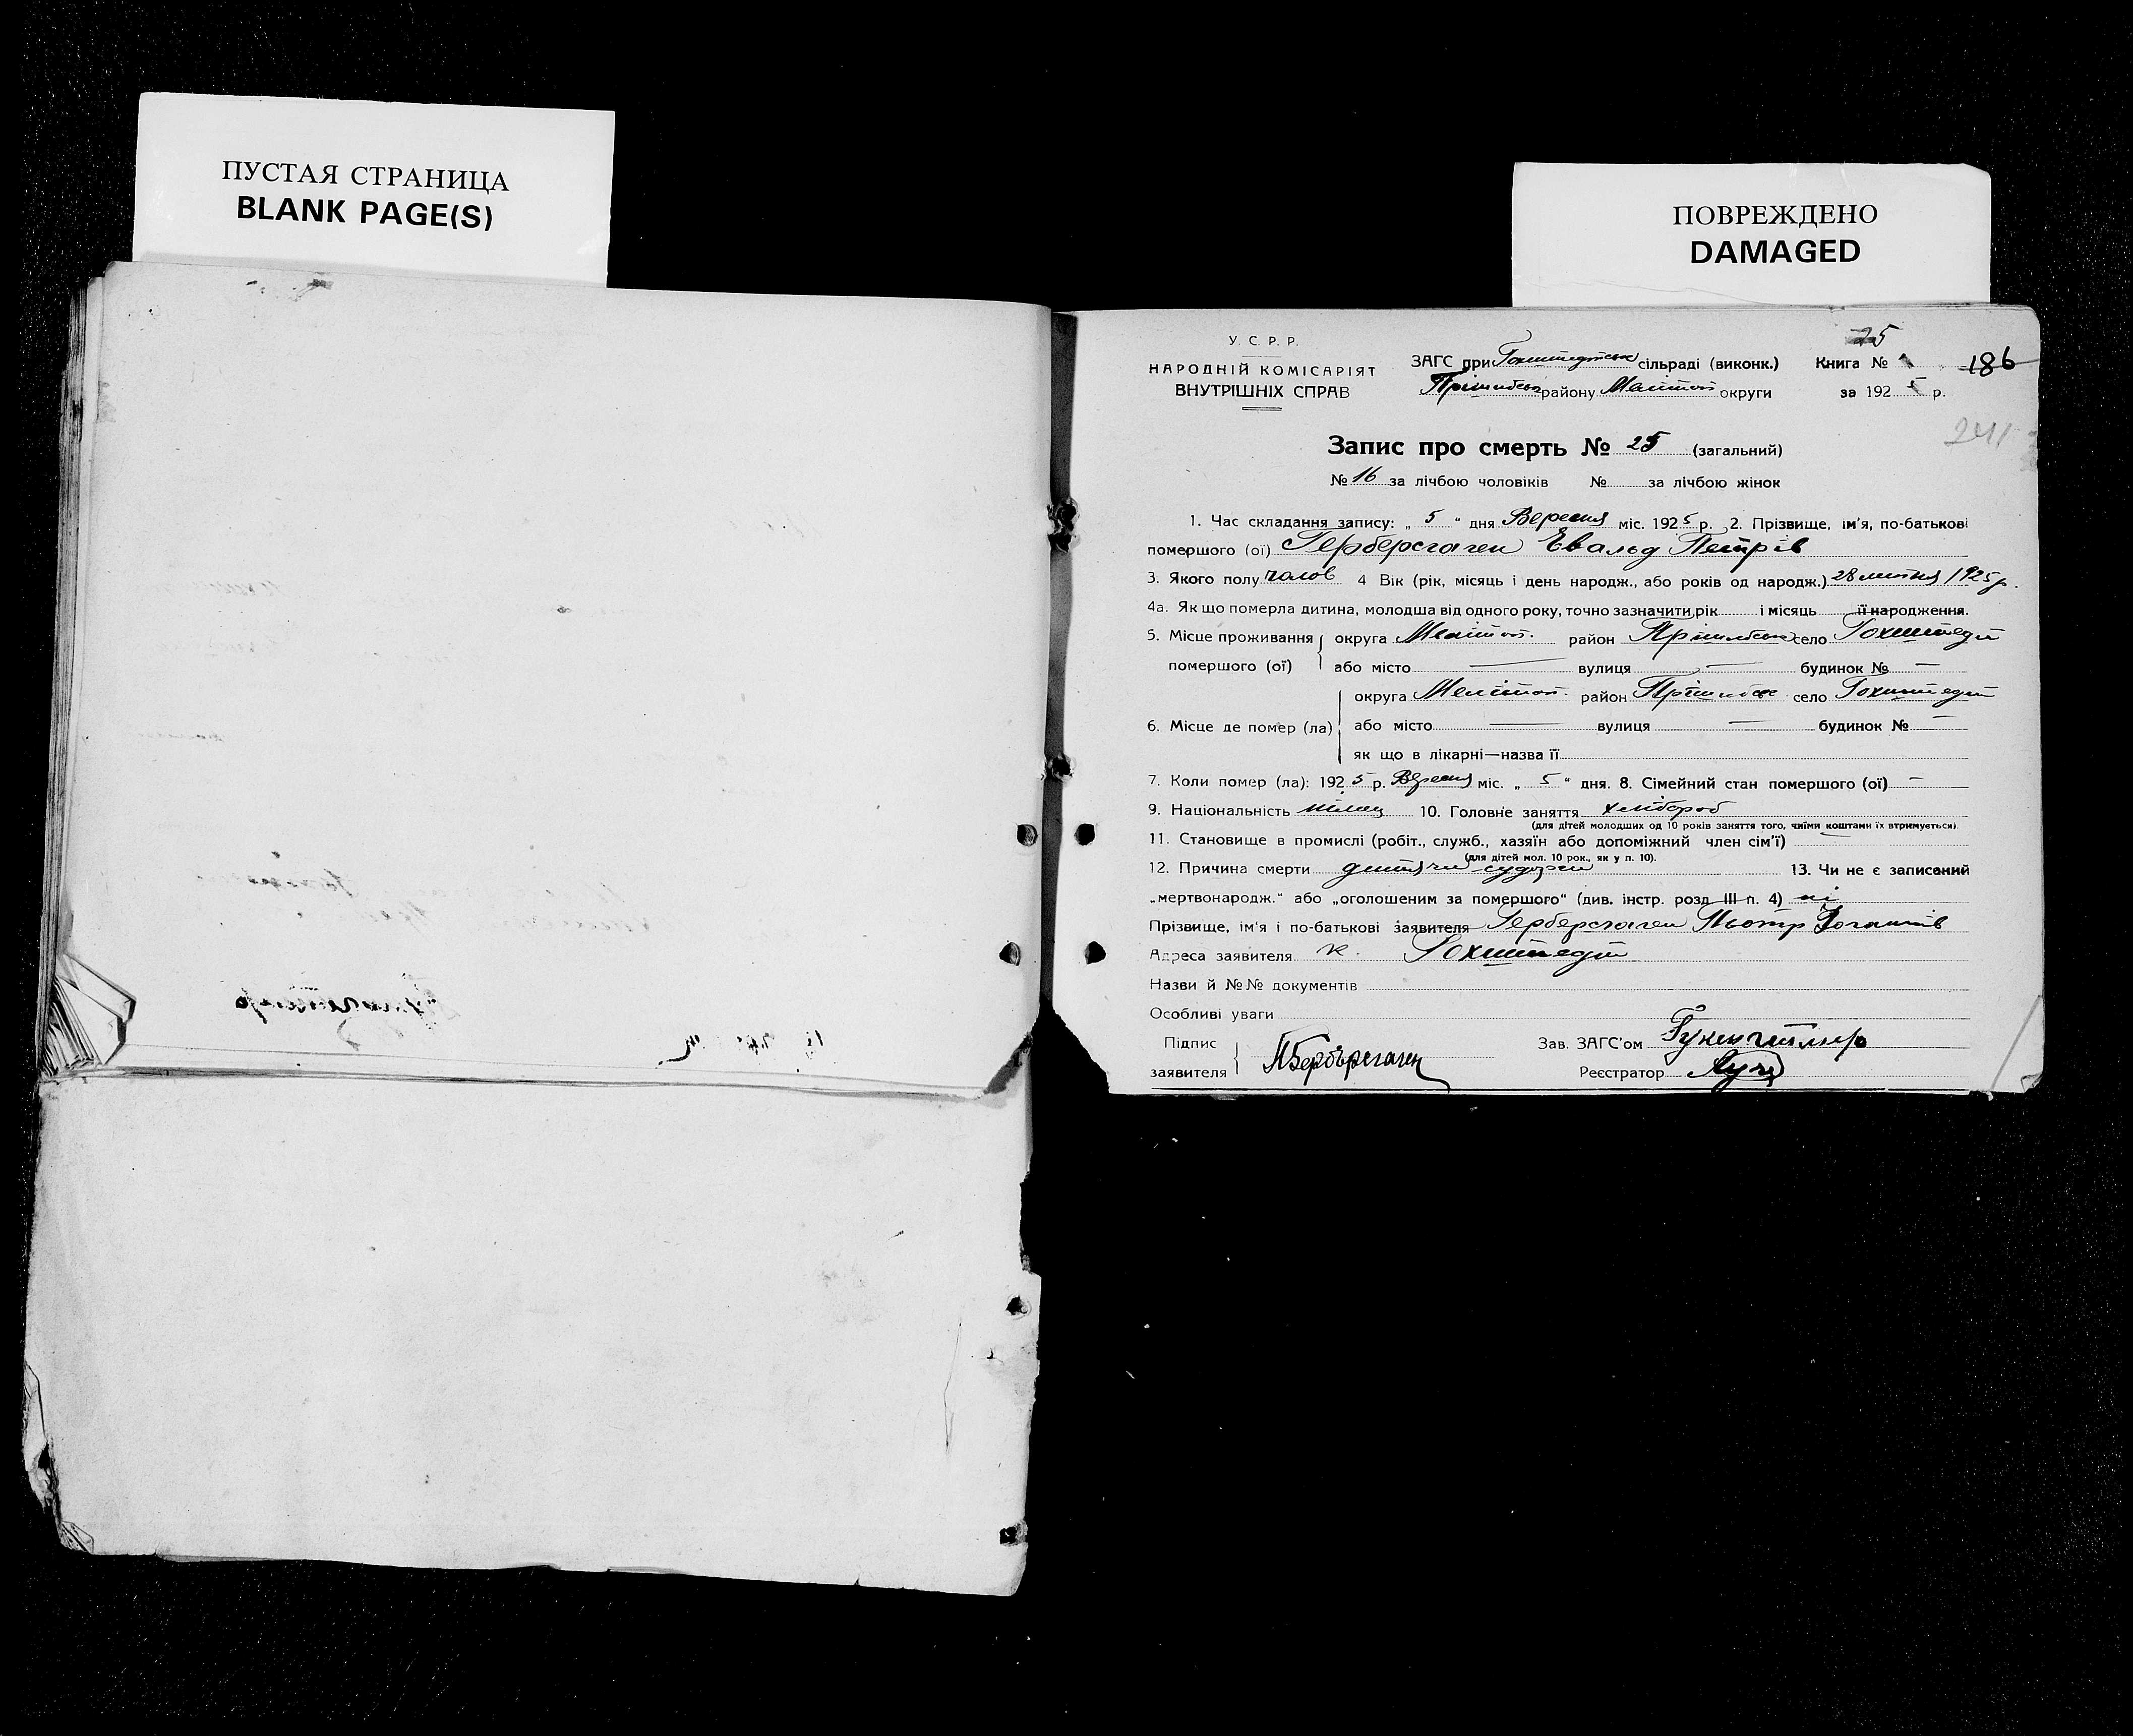 ПУСТАЯ СТРАНИЦА
BLANK PAGE(S)
ПОВРЕЖДЕНО
DAMAGED
У. С. Р. Р.
НАРОДНІЙ КОМІСАРІЯТ
ВНУТРІШНІХ СПРАВ
ЗАГС при Гохштедтськ сільраді (виконк.)
Пришибськ району Меліт округи
25
Книга № 186
за 1925 р.
241
Запис про смерть № 25 (загальний)
№ 16 за лічбою чоловіків № за лічбою жінок
1. Час складання запису: „ 5 " дня Вересня міс. 1925 р. 2. Прізвище, ім'я, по-батькові
помершого (ої) Гербергаген Евальд Петрів
3. Якого полу чолов 4 Вік (рік, місяць і день народж., або років од народж.) 28 1925 р.
4а. Як що померла дитина, молодша від одного року, точно зазначити рік і місяць її народження.
5. Місце проживання округа Меліт район Пришибськ село Гохштедт
помершого (ої) або місто — вулиця — будинок № —
округа Меліт район Пришибськ село Гохштедт
6. Місце де помер (ла) або місто — вулиця — будинок № —
як що в лікарні—назва її
7. Коли помер (ла): 1925 р. Вересня міс. „ 5 " дня. 8. Сімейний стан помершого (ої) —
9. Національність німец 10. Головне заняття хлібороб
(для дітей молодших од 10 років заняття того, чиїми коштами їх втримується).
11. Становище в промислі (робіт., служб., хазяїн або допоміжний член сім'ї) —
(для дітей мол. 10 рок., як у п. 10).
12. Причина смерти дитячи судорги 13. Чи не є записаний
„мертвонародж." або „оголошеним за помершого" (див. інстр. розд III п. 4) ні
Прізвище, ім'я і по-батькові заявителя Гербергаген Пьотр
Адреса заявителя к. Гохштедт
Назви й №№ документів
Особливі уваги
Підпис
заявителя
Зав. ЗАГС'ом
Реєстратор